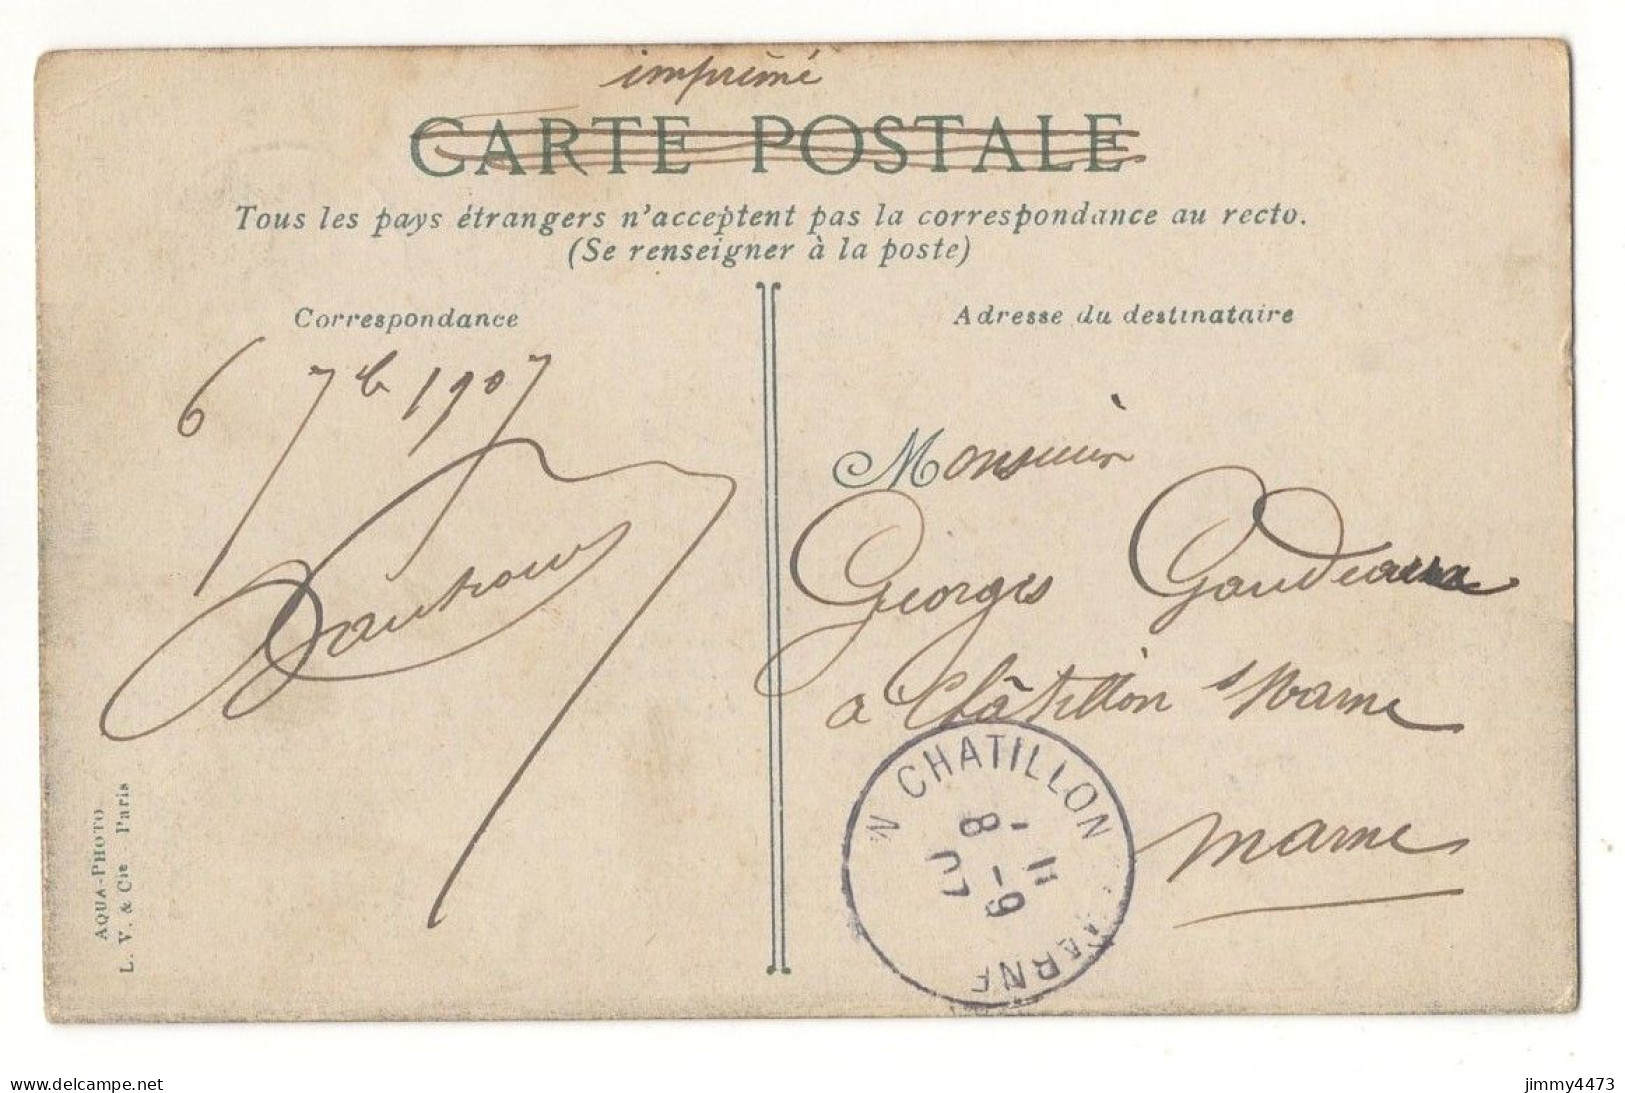 imprimé
CARTE POSTALE
Tous les pays étrangers n'acceptent pas la correspondance au recto.
(Se renseigner à la poste)
Correspondance
Adresse du destinataire
6 7b 1907
Monsieur
Georges
a Châtillon s/Marne
Marne
CHATILLON
8 -9
07
AQUA-PHOTO
L. V. & Cie Paris
jimmy4473